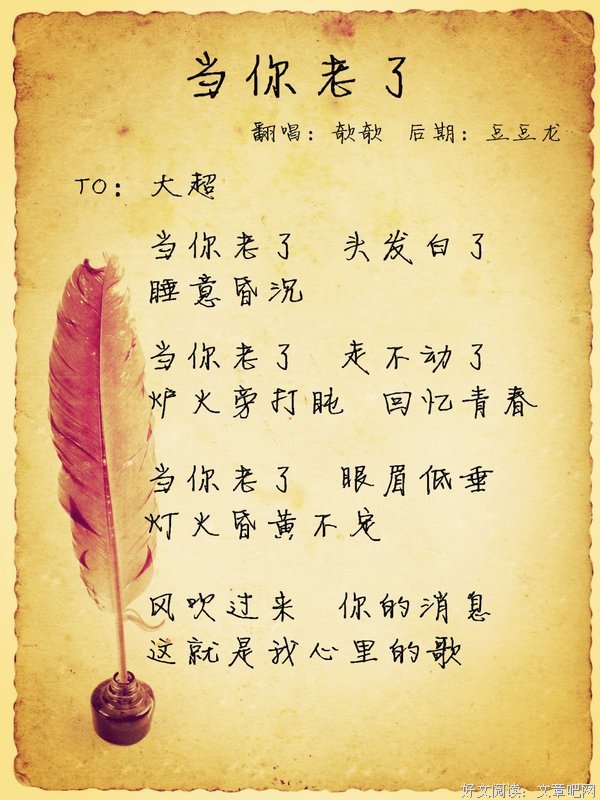 当你老了
翻唱：欹欹 后期：豆豆龙
TO：大超
当你老了 头发白了
睡意昏沉
当你老了 走不动了
炉火旁打盹 回忆青春
当你老了 眼眉低垂
灯火昏黄不定
风吹过来 你的消息
这就是我心里的歌
好文阅读：文章吧网